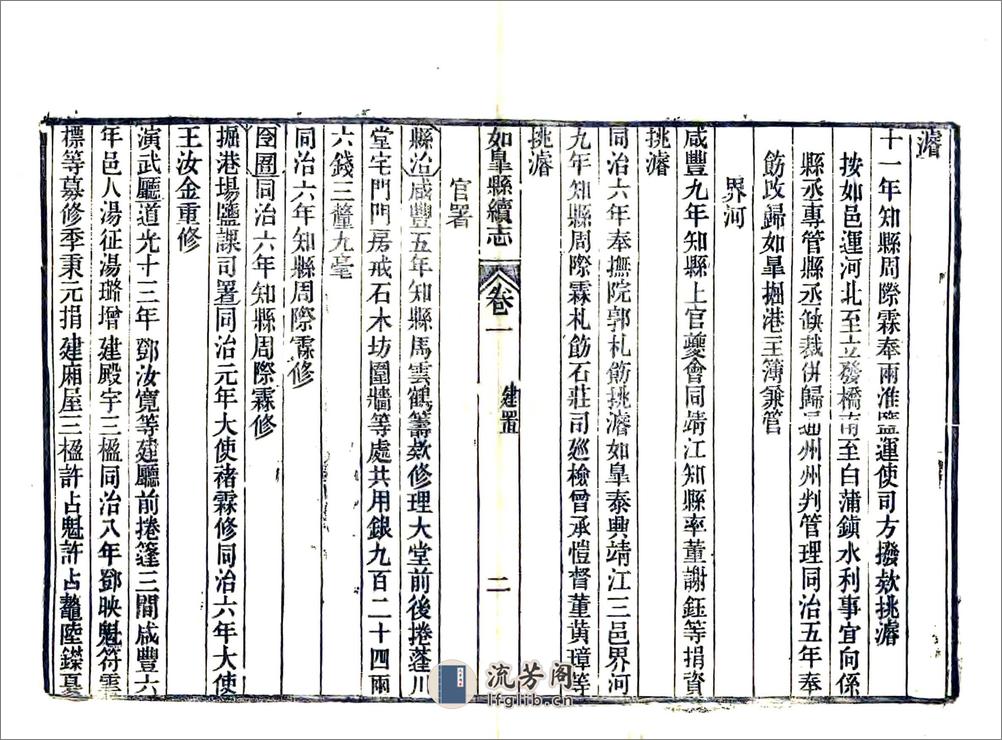 濬
十一年知縣周際霖奉兩淮鹽運使司方撥欵挑濬
按如邑運河北至立發橋南至白蒲鎮水利事宜向係
縣丞專管縣丞缺裁併歸通州州判管理同治五年奉
飭改歸如臯掘港主簿兼管
界河
咸豐九年知縣上官夔會同靖江知縣率董謝鈺等捐資
挑濬
同治六年奉撫院郭札飭挑濬如臯泰興靖江三邑界河
九年知縣周際霖札飭石莊司廵檢曾承愷督董黃璋等
挑濬
如臯縣續志 卷一 建置 二
官署
縣治咸豐五年知縣馬雲鶴籌欵修理大堂前後捲蓬川
堂宅門門房戒石木坊圍牆等處共用銀九百二十四兩
六錢三釐九毫
同治六年知縣周際霖修
囹圄同治六年知縣周際霖修
掘港場鹽課司署同治元年大使褚霖修同治六年大使
王汝金重修
演武廳道光十三年鄧汝寬等建廳前捲篷三間咸豐六
年邑人湯征湯璐增建殿宇三楹同治八年鄧映魁符雲
標等募修季秉元捐建廂屋三楹許占魁許占鼇陸鑅憂
流芳阁
lfglib.cn